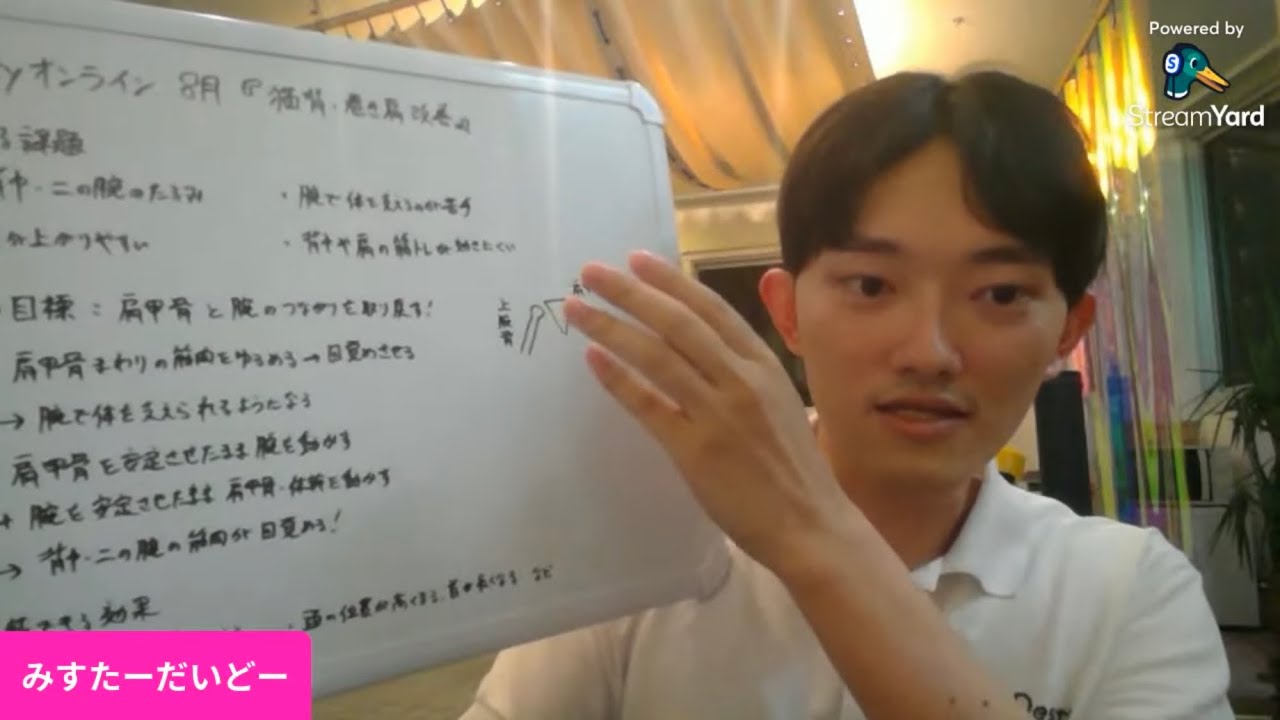 オンライン 8月『猫背・巻き肩改善』
課題
背中・二の腕のたるみ
・腕で体を支えるのが苦手
が上がりやすい
・背中や肩の筋トレが効きにくい
目標:肩甲骨と腕のつながりを取り戻す!
上腕骨
肩甲骨まわりの筋肉をゆるめる→目覚めさせる
→腕で体を支えられるようになる
肩甲骨を安定させたまま腕を動かす
+腕を安定させたまま肩甲骨・体幹を動かす
→背中・二の腕の筋肉が目覚める!
できる効果
・頭の位置が高くなる、首が長くなる など
みすたーだいどー
Powered by
StreamYard